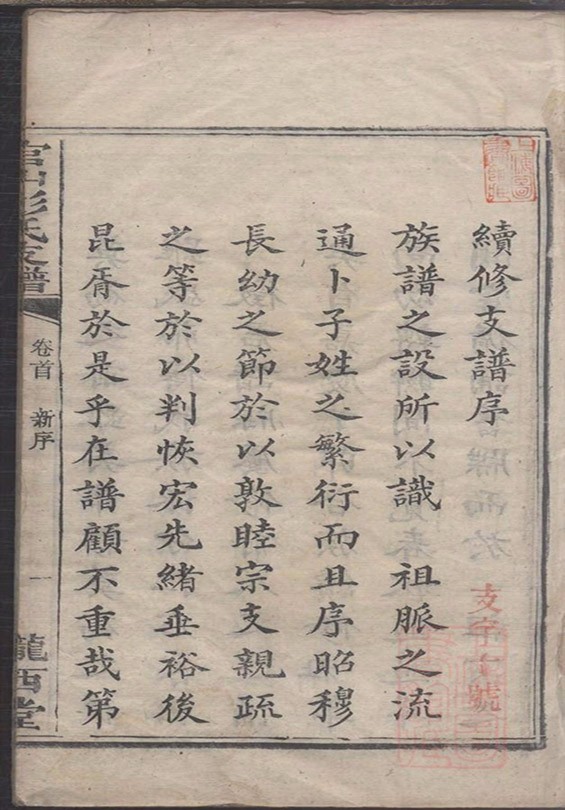 續修支譜序
族譜之設所以識祖脈之流
通卜子姓之繁衍而且序昭穆
長幼之節於以敦睦宗支親疏
之等於以判恢宏先緒垂裕後
昆胥於是乎在譜顧不重哉第
官山彭氏支譜
卷首 新序
一
隴西堂
支字 號